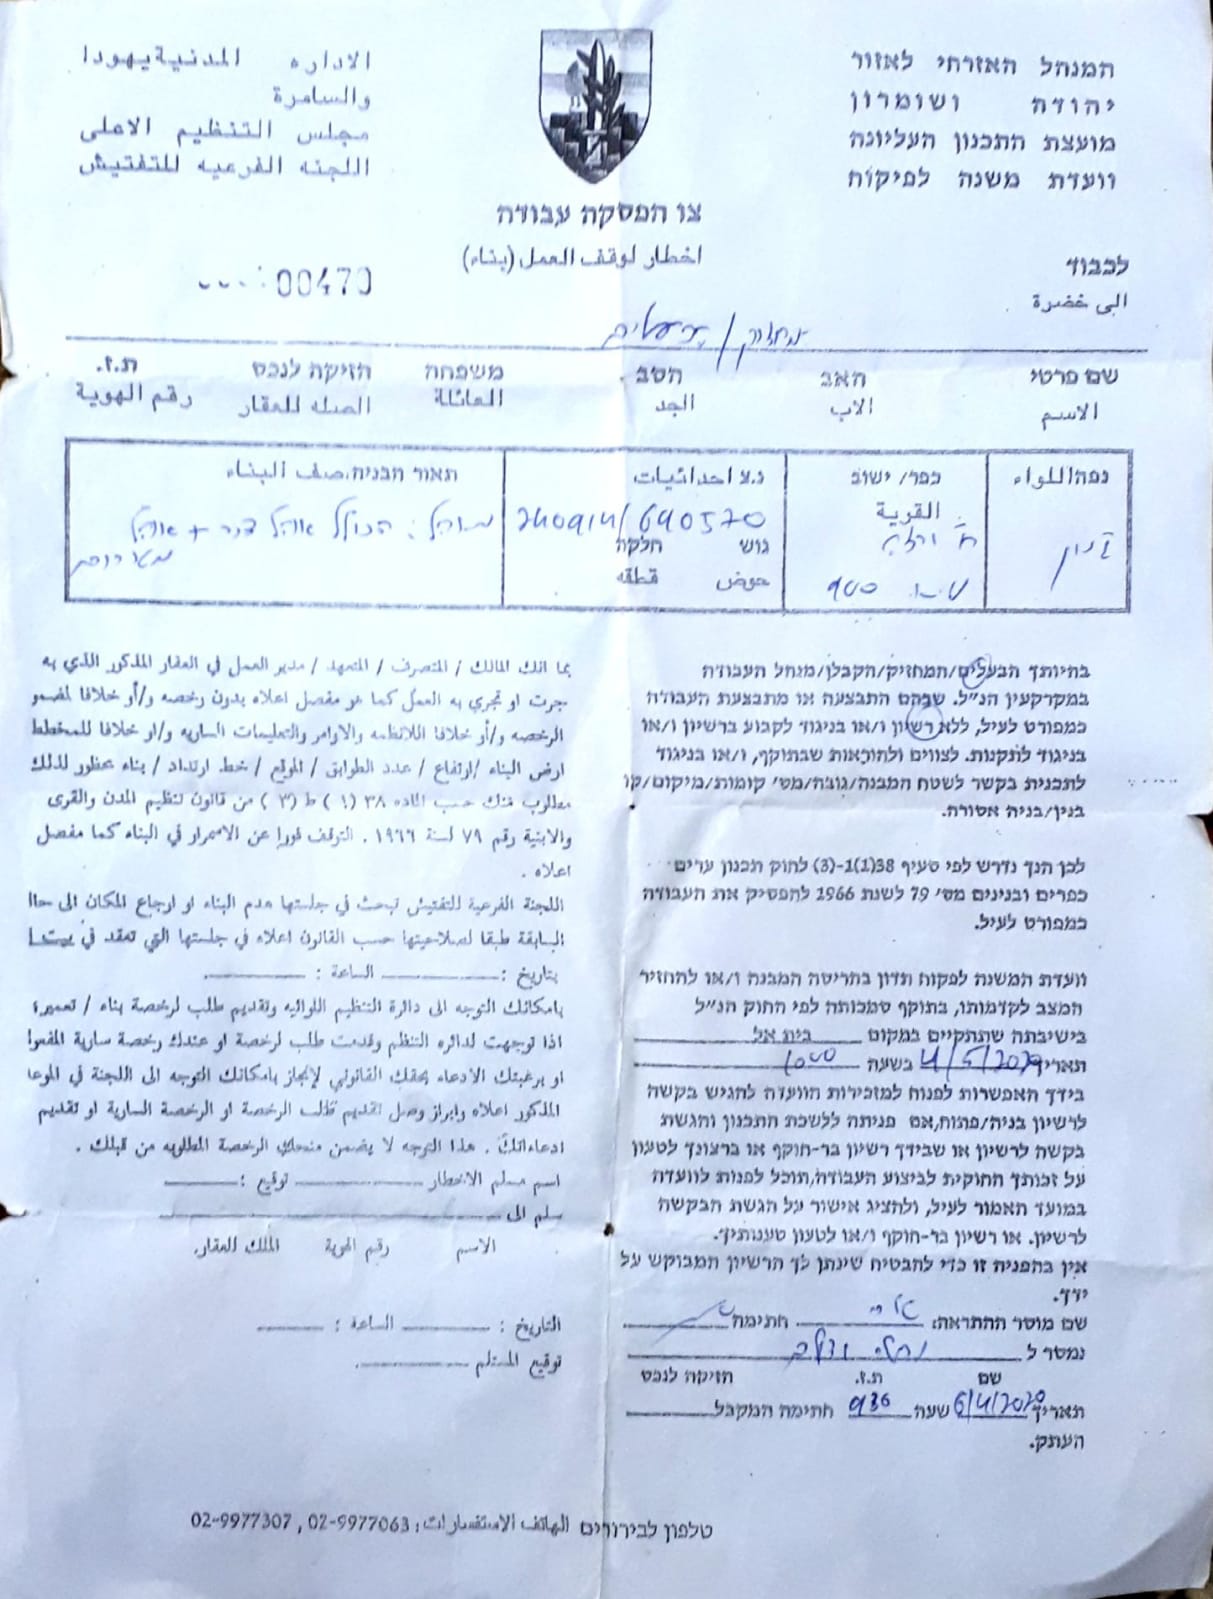 המנהל האזרחי לאזור
יהודה ושומרון
מועצת התכנון העליונה
וועדת משנה לפיקוח
الاداره المدنية يهودا
والسامرة
مجلس التنظيم الاعلى
اللجنه الفرعيه للتفتيش
צו הפסקה עבודה
اخطار لوقف العمل (بناء)
00470
לכבוד
الى حضرة
מחזיק / בעלים
שם פרטי האב הסב משפחה חזיקה לנכס ת.ז.
الاسم الاب الجد العائلة الصله للعقار رقم الهوية
נפה/اللواء
כפר/ ישוב
القرية
נ.צ احداثيات
240914/640570
גוש חלקה
حوض قطعه
תאור הבניה.صف البناء
מוהל: הכולל אוהל דיר + אוהל
בהיותך הבעלים/המחזיק/הקבלן/מנהל העבודה
במקרקעין הנ״ל. שבהם התבצעה או מתבצעת העבודה
כמפורט לעיל, ללא רשיון ו/או בניגוד לקבוע ברשיון ו/או
בניגוד לתקנות. לצווים ולהוראות שבתוקף, ו/או בניגוד
לתכנית בקשר לשטח המבנה/גובה/מס׳ קומות/מיקום/קו
בנין/בניה אסורה.
לכן הנך נדרש לפי סעיף 38(1)1-(3) לחוק תכנון ערים
כפרים ובנינים מס׳ 79 לשנת 1966 להפסיק את העבודה
כמפורט לעיל.
וועדת המשנה לפקוח תדון בהריסה המבנה ו/או להחזיר
המצב לקדמותו, בתוקף סמכותה לפי החוק הנ״ל
בישיבתה שתתקיים במקום בית אל
תאריך 4/5/2020 בשעה 1000
בידך האפשרות לפנות למזכירות הוועדה להגיש בקשה
לרשיון בניה/פתוח, אם פניתה ללשכת התכנון והגשת
בקשה לרשיון או שבידך רשיון בר-תוקף או ברצונך לטעון
על זכותך החוקית לביצוע העבודה, תוכל לפנות לוועדה
במועד האמור לעיל, ולהציג אישור על הגשת הבקשה
לרשיון. או רשיון בר-תוקף ו/או לטעון טענותיך.
אין בהפניה זו כדי להבטיח שינתן לך הרשיון המבוקש על
ידך.
שם מוסר ההתראה: חתימה
נמסר ל
שם ת.ז. חזיקה לנכס
תאריך 6/4/2020 שעה 936 חתימה המקבל
העתק.
بما انك المالك / المتصرف / المتعهد / مدير العمل في العقار المذكور الذي به
جرت او تجري به العمل كما هو مفصل اعلاه بدون رخصه و/أو خلافا لمضمو
الرخصه و/أو خلافا للانظمه والاوامر والتعليمات الساريه و/او خلافا للمخطط
ارض البناء /ارتفاع / عدد الطوابق / الموقع / خط ارتداد / بناء محظور لذلك
مطلوب منك حسب الماده ٣٨ (١) ط (٣) من قانون تنظيم المدن والقرى
والابنية رقم ٧٩ لسنة ١٩٦٦ . التوقف فورا عن الاستمرار في البناء كما مفصل
اعلاه .
اللجنة الفرعية للتفتيش تبحث في جلستها هدم البناء او ارجاع المكان الى حاا
السابقة طبقا لصلاحيتها حسب القانون اعلاه في جلستها التي تعقد في بيت ا
بتاريخ : الساعة :
بامكانك التوجه الى دائرة التنظيم اللوائيه وتقديم طلب لرخصة بناء / تعميره
اذا توجهت لدائره التنظم وقدمت طلب لرخصة او عندك رخصة سارية المفعوا
او برغبتك الادعاء بحقك القانوني لإنجاز بامكانك التوجه الى اللجنة في الموعا
المذكور اعلاه وإبراز وصل تقديم طلب الرخصة او الرخصة السارية او تقديم
ادعاءاتك . هذا التوجه لا يضمن منحك الرخصة المطلوبه من قبلك .
اسم مسلم الاخطار توقيع :
سلم الى
الاسم رقم الهوية الملك للعقار.
التاريخ : الساعة :
توقيع المستلم
טלפון לבירורים الهاتف الاستفسارات: 02-9977063 , 02-9977307